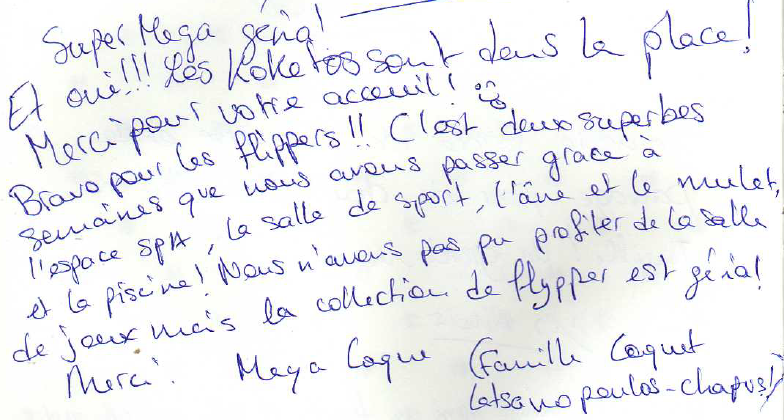 Super Mega génial
Et oui!!! Les Koketos sont dans la place!
Merci pour votre acceuil!
Bravo pour les flippers!! C'est deux superbes
semaines que nous avons passer grace à
l'espace SPA, la salle de sport, l'âne et le mulet,
et la piscine! Nous n'avons pas pu profiter de la salle
de jeux mais la collection de flypper est génial
Merci. Mega Coque (Famille Coquet
Latsanopoulos-chapus)